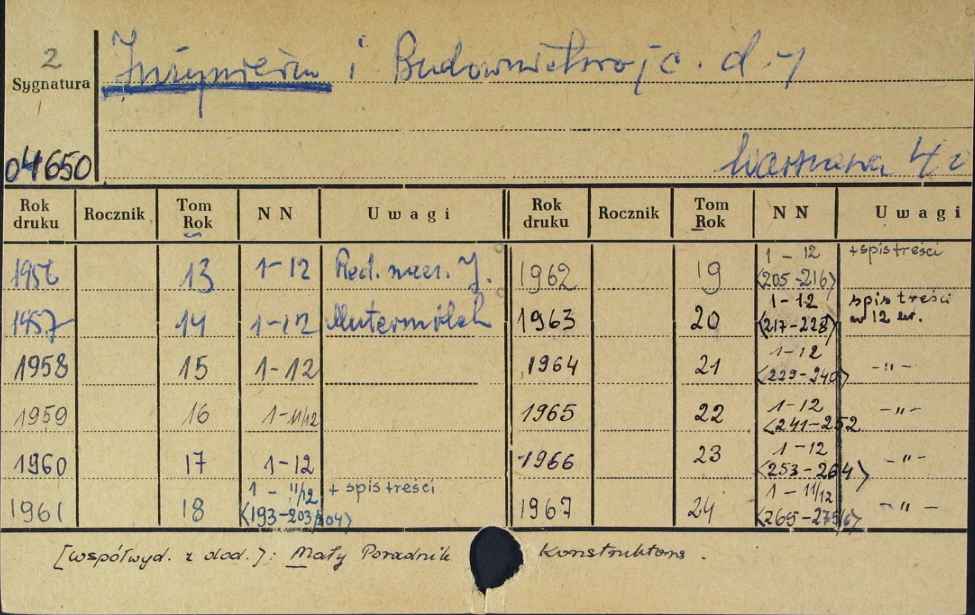 2
Sygnatura
04650
Inżynieria i Budownictwo j c. d. 1
Warszawa 4 r
Rok druku | Rocznik | Tom Rok | N N | Uwagi | Rok druku | Rocznik | Tom Rok | N N | Uwagi
1956 | | 13 | 1-12 | Red. nacz. J. | 1962 | | 19 | 1-12 <205-216> | + spis treści
1957 | | 14 | 1-12 | Mutermilch | 1963 | | 20 | 1-12 <217-228> | spis treści w 12 nr.
1958 | | 15 | 1-12 | | 1964 | | 21 | 1-12 <229-240> | -"-
1959 | | 16 | 1-11/12 | | 1965 | | 22 | 1-12 <241-252 | -"-
1960 | | 17 | 1-12 | | 1966 | | 23 | 1-12 <253-264> | -"-
1961 | | 18 | 1-11/12 <193-203/204> | + spis treści | 1967 | | 24 | 1-11/12 | -"-
[współwyd. z dod.]: Mały Poradnik Konstruktora.